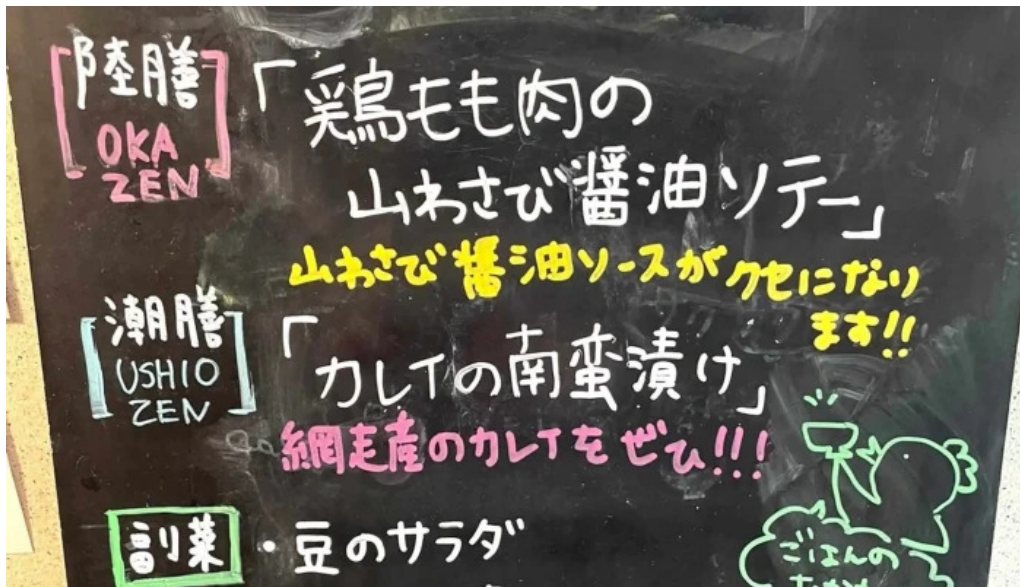 [陸膳
OKA
ZEN]
「鶏もも肉の
山わさび醤油ソテー」
山わさび醤油ソースがクセになり
ます!!
[潮膳
USHIO
ZEN]
「カレイの南蛮漬け」
網走産のカレイをぜひ!!!
副菜
・豆のサラダ
ごはんの